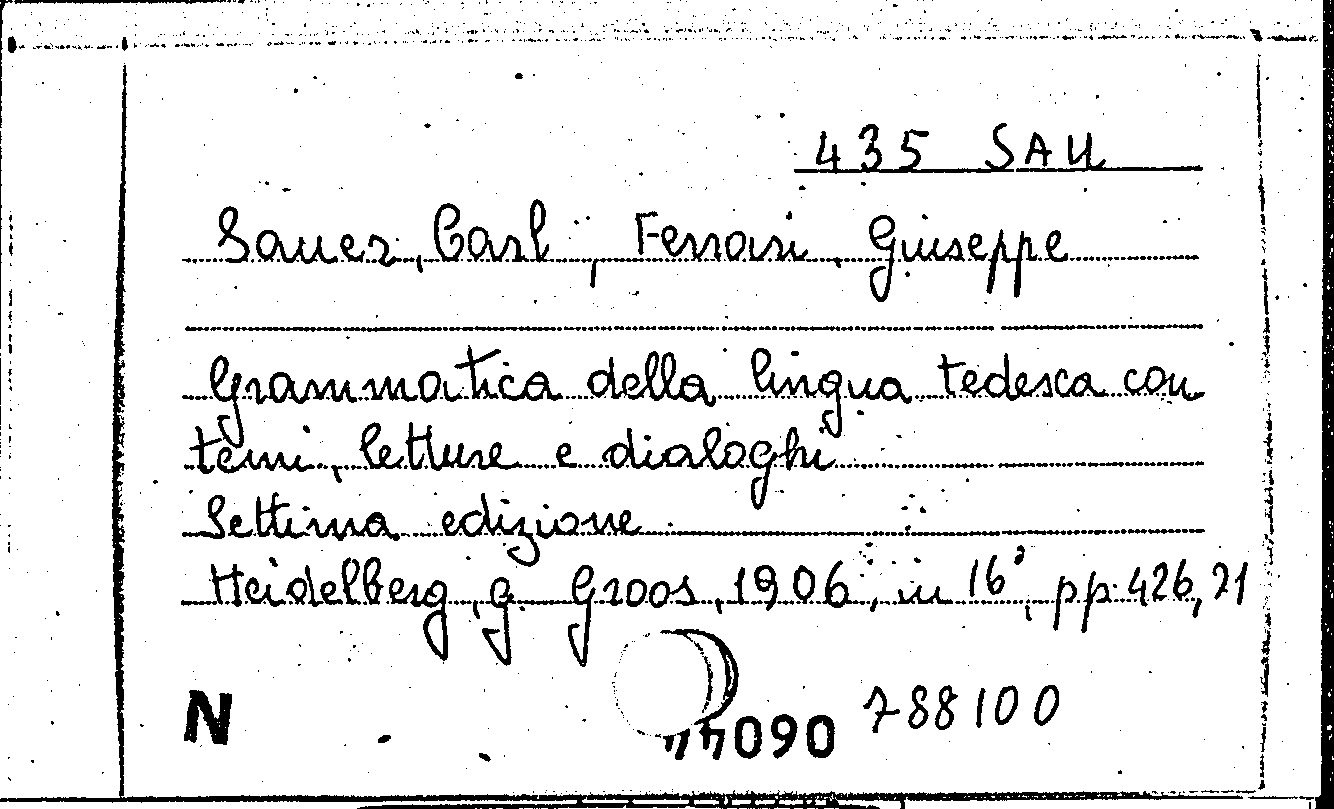 435 SAU
Sauer, Carl, Ferrari, Giuseppe
Grammatica della lingua tedesca con
temi, letture e dialoghi
Settima edizione
Heidelberg, G. Groos, 1906, in 16°, pp. 426, 21
N 788100